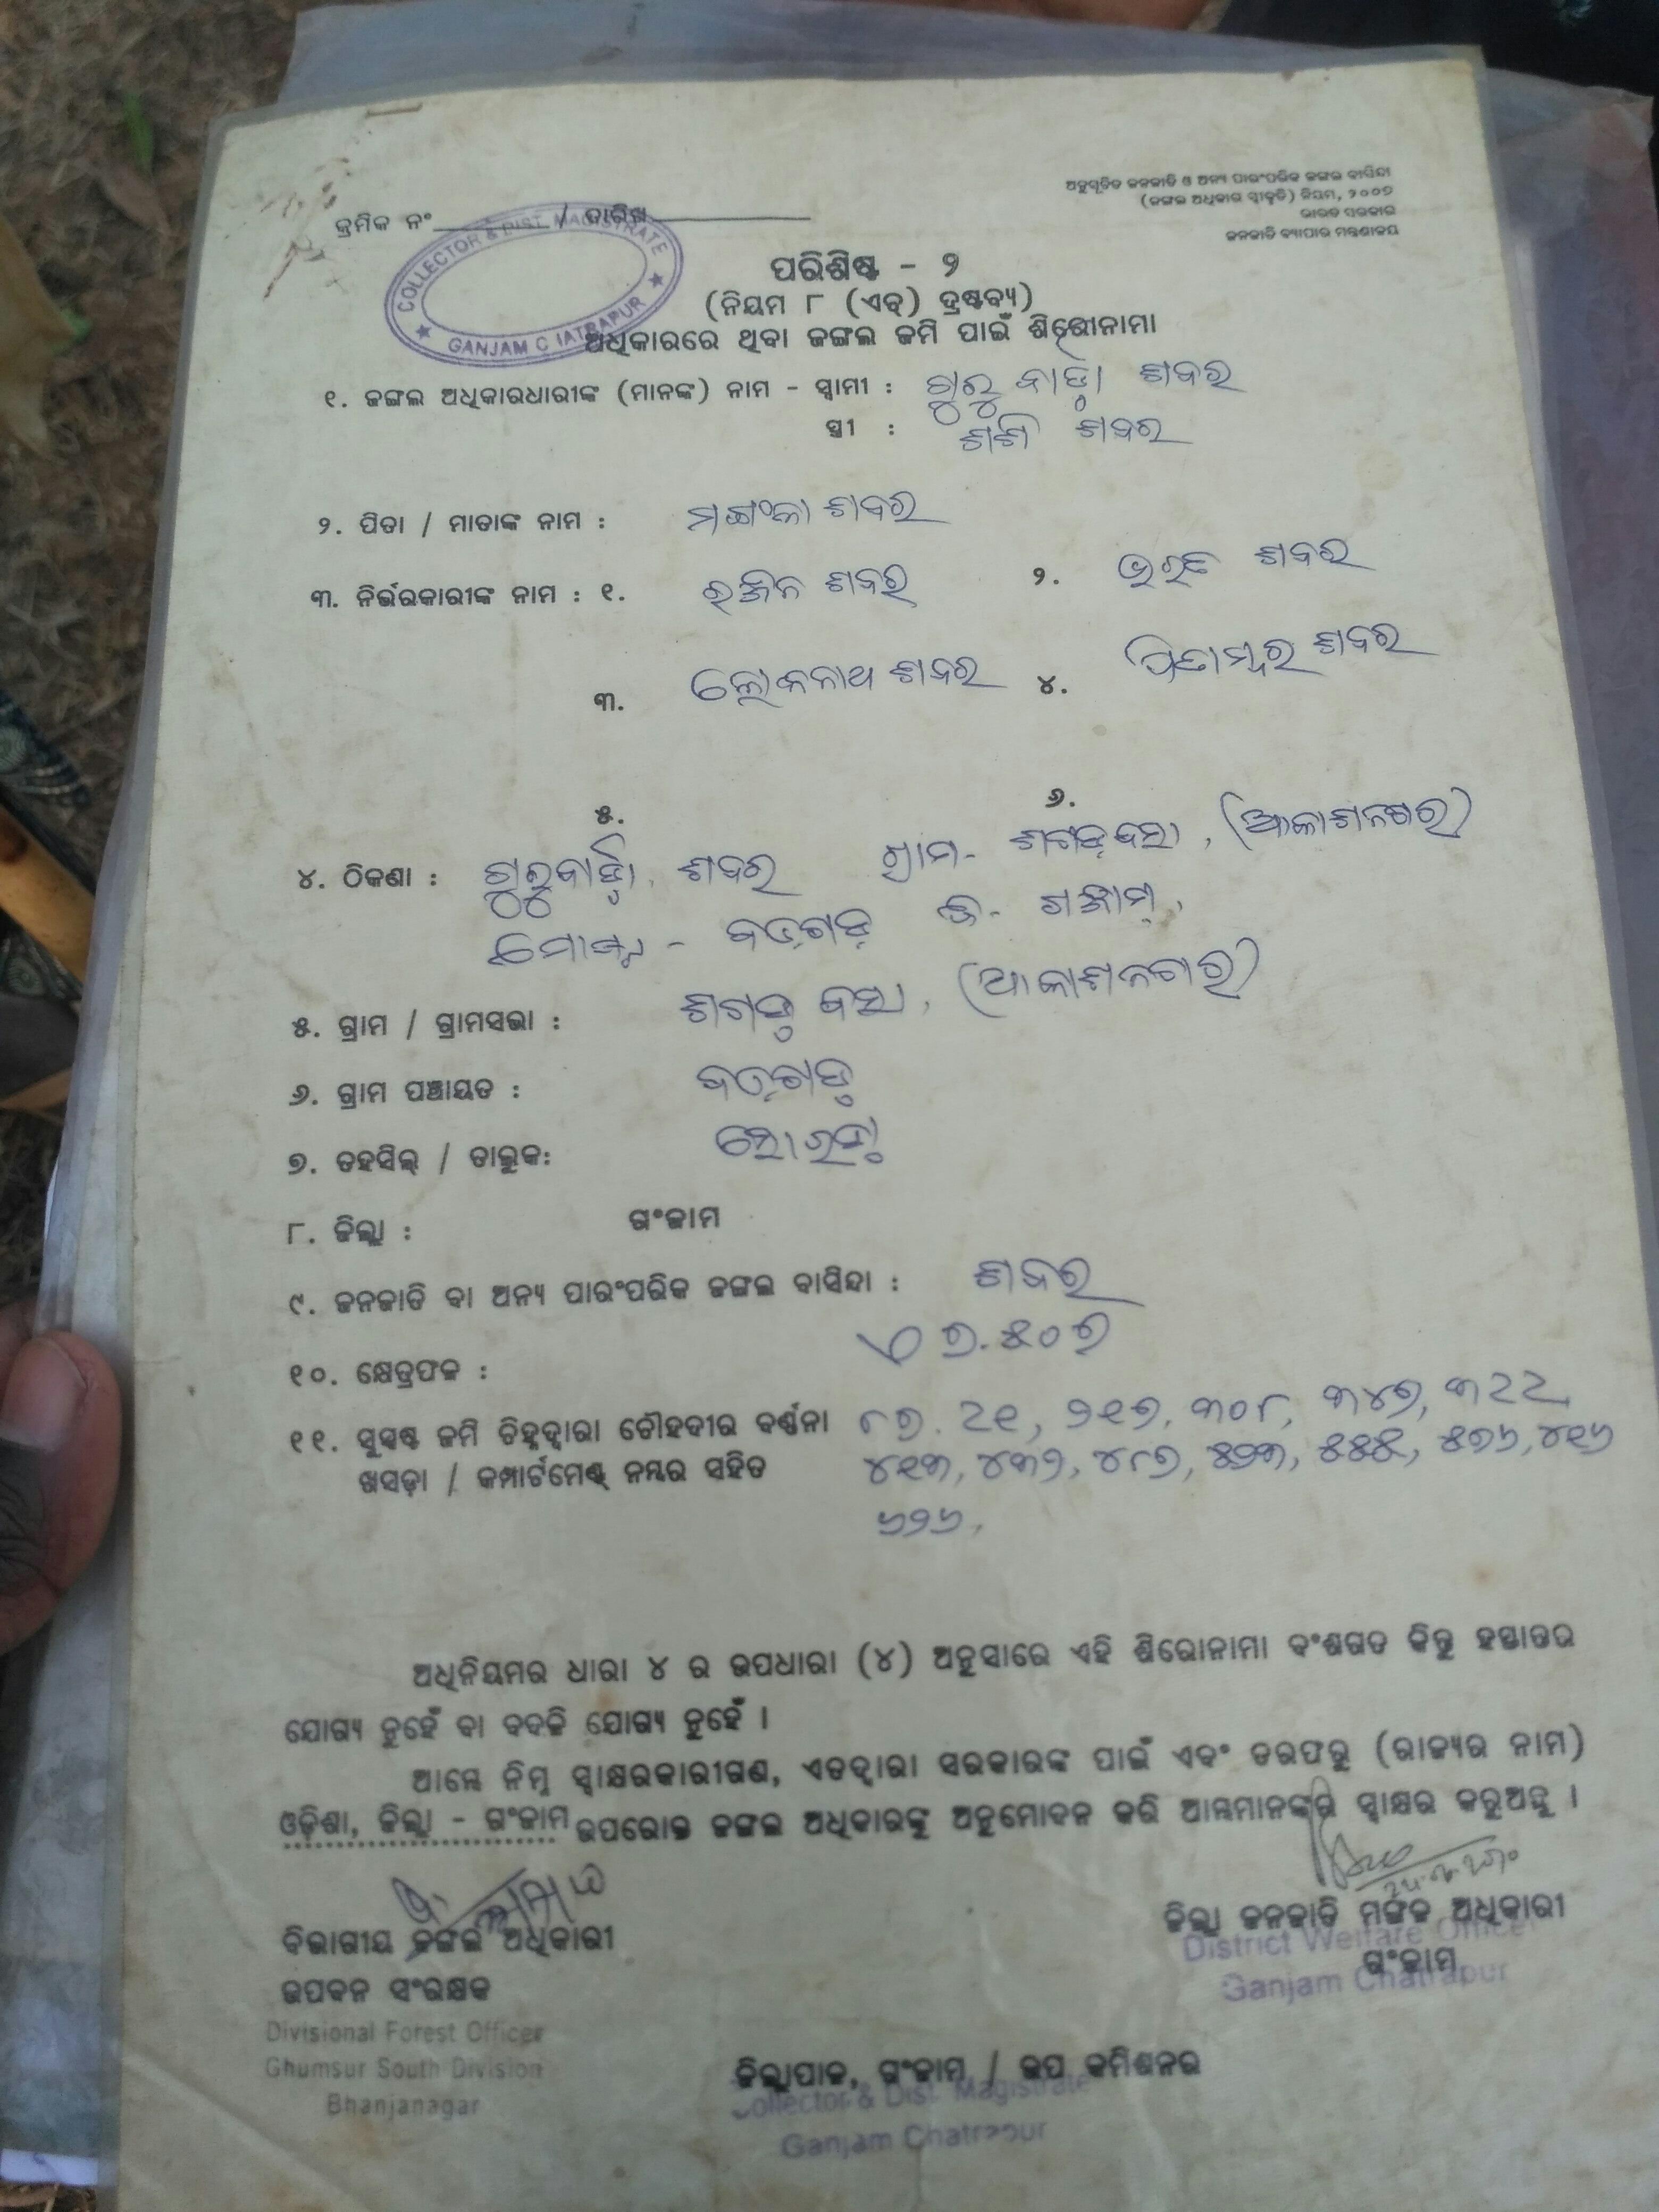 ଅନୁସୂଚିତ ଜନଜାତି ଓ ଅନ୍ୟ ପାରଂପରିକ ଜଙ୍ଗଲ ବାସିନ୍ଦା
(ଜଙ୍ଗଲ ଅଧିକାର ସ୍ୱୀକୃତି) ନିୟମ, ୨୦୦୭
ଭାରତ ସରକାର
ଜନଜାତି ବ୍ୟାପାର ମନ୍ତ୍ରଣାଳୟ
କ୍ରମିକ ନଂ / ତାରିଖ
COLLECTOR & DIST. MAGISTRATE
GANJAM CHATRAPUR
ପରିଶିଷ୍ଟ - ୨
(ନିୟମ ୮ (ଏଚ୍) ଦ୍ରଷ୍ଟବ୍ୟ)
ଅଧିକାରରେ ଥିବା ଜଙ୍ଗଲ ଜମି ପାଇଁ ଶିରୋନାମା
୧. ଜଙ୍ଗଲ ଅଧିକାରଧାରୀଙ୍କ (ମାନଙ୍କ) ନାମ - ସ୍ୱାମୀ : ଶବର
ସ୍ତ୍ରୀ : ଶଶି ଶବର
୨. ପିତା / ମାତାଙ୍କ ନାମ : ଶବର
୩. ନିର୍ଭରକାରୀଙ୍କ ନାମ : ୧. ରଞ୍ଜନ ଶବର ୨. ଭରତ ଶବର
୩. ଲୋକନାଥ ଶବର ୪. ପିତାମ୍ବର ଶବର
୫. ୬.
୪. ଠିକଣା : ଶବର ଗ୍ରାମ- (ଆକାଶନଗର)
ବଡ଼ଗଡ଼ ଜି- ଗଞ୍ଜାମ,
୫. ଗ୍ରାମ / ଗ୍ରାମସଭା : (ଆକାଶନଗର)
୬. ଗ୍ରାମ ପଞ୍ଚାୟତ : ବଡ଼ଗଡ଼
୭. ତହସିଲ୍ / ତାଲୁକ: ସୋରଡ଼ା
୮. ଜିଲ୍ଲା : ଗଂଜାମ
୯. ଜନଜାତି ବା ଅନ୍ୟ ପାରଂପରିକ ଜଙ୍ଗଲ ବାସିନ୍ଦା : ଶବର
୧୦. କ୍ଷେତ୍ରଫଳ : ୭.୫୦୭
୧୧. ସୁସ୍ପଷ୍ଟ ଜମି ଚିହ୍ନଦ୍ୱାରା ଚୌହଦୀର ବର୍ଣ୍ଣନା ୮୭, ୨୧୭, ୩୦୮, ୩୪୭,
ଖସଡ଼ା / କମ୍ପାର୍ଟମେଣ୍ଟ୍ ନମ୍ବର ସହିତ ୪୧୩, ୪୩୨, ୪୮୭, ୫୨୩, ୫୫୫, ୫୭୬, ୪୧୬
୬୨୬,
ଅଧିନିୟମର ଧାରା ୪ ର ଉପଧାରା (୪) ଅନୁସାରେ ଏହି ଶିରୋନାମା ବଂଶଗତ କିନ୍ତୁ ହସ୍ତାନ୍ତର
ଯୋଗ୍ୟ ନୁହେଁ ବା ବଦଳି ଯୋଗ୍ୟ ନୁହେଁ ।
ଆମ୍ଭେ ନିମ୍ନ ସ୍ୱାକ୍ଷରକାରୀଗଣ, ଏତଦ୍ୱାରା ସରକାରଙ୍କ ପାଇଁ ଏବଂ ତରଫରୁ (ରାଜ୍ୟର ନାମ)
ଓଡ଼ିଶା, ଜିଲ୍ଲା - ଗଂଜାମ ଉପରୋକ୍ତ ଜଙ୍ଗଲ ଅଧିକାରଙ୍କୁ ଅନୁମୋଦନ କରି ଆମ୍ଭମାନଙ୍କର ସ୍ୱାକ୍ଷର କରୁଅଛୁ ।
ବିଭାଗୀୟ ଜଙ୍ଗଲ ଅଧିକାରୀ
ଉପବନ ସଂରକ୍ଷକ
Divisional Forest Officer
Ghumsur South Division
Bhanjanagar
ଜିଲ୍ଲା ଜନଜାତି ମଙ୍ଗଳ ଅଧିକାରୀ
ଗଂଜାମ
District Welfare Officer
Ganjam Chatrapur
ଜିଲ୍ଲାପାଳ, ଗଂଜାମ / ଉପ କମିଶନର
Collector & Dist. Magistrate
Ganjam Chatrapur